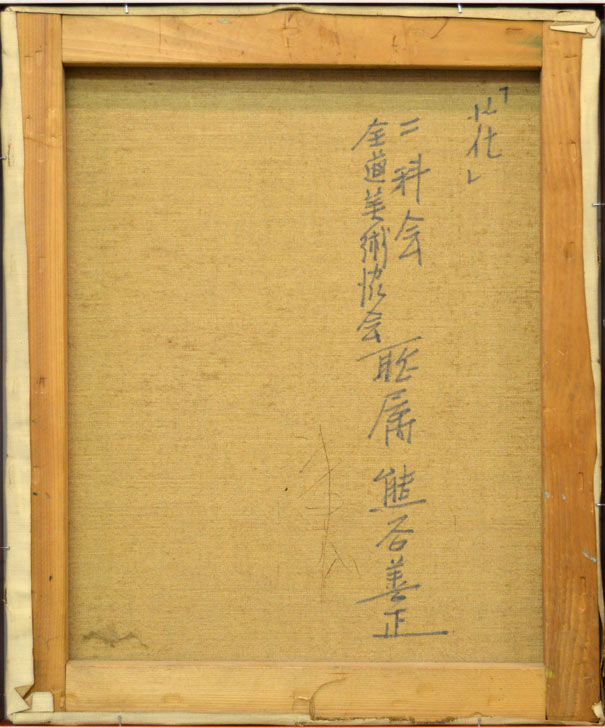 「花」
二科会
全道美術協会
所属 熊谷善正